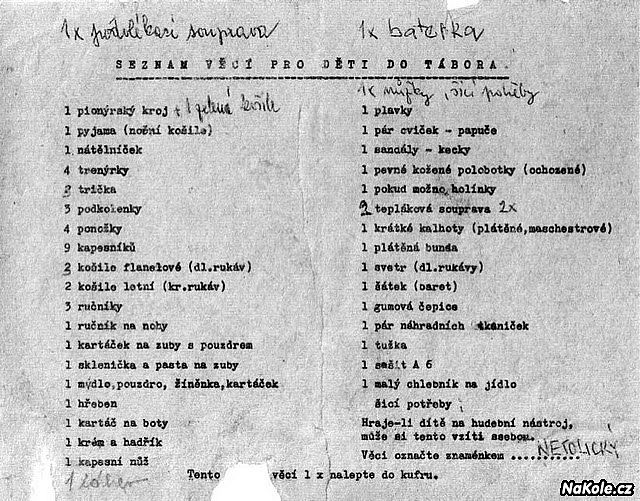 1x povlékací souprava
1x baterka
SEZNAM VĚCÍ PRO DĚTI DO TÁBORA.
1x nůžky, šicí potřeby
1 pionýrský kroj + 1 zelená košile
1 pyjama (noční košile)
1 nátělníček
4 trenýrky
3 trička
3 podkolenky
4 ponožky
9 kapesníků
2 košile flanelové (dl.rukáv)
2 košile letní (kr.rukáv)
3 ručníky
1 ručník na nohy
1 kartáček na zuby s pouzdrem
1 sklenička a pasta na zuby
1 mýdlo,pouzdro, žíněnka,kartáček
1 hřeben
1 kartáč na boty
1 krém a hadřík
1 kapesní nůž
1 plavky
1 pár cviček - papuče
1 sandály - kecky
1 pevné kožené polobotky (ochozené)
1 pokud možno holínky
2 tepláková souprava 2x
1 krátké kalhoty (plátěné,maschestrové)
1 plátěná bunda
1 svetr (dl.rukávy)
1 šátek (baret)
1 gumová čepice
1 pár náhradních tkaniček
1 tuška
1 sešit A 6
1 malý chlebník na jídlo
šicí potřeby
Hraje-li dítě na hudební nástroj,
může si tento vzíti ssebou.
Věci označte znaménkem ........... NETOLICKÝ
Tento věcí 1 x nalepte do kufru.
NaKole.cz